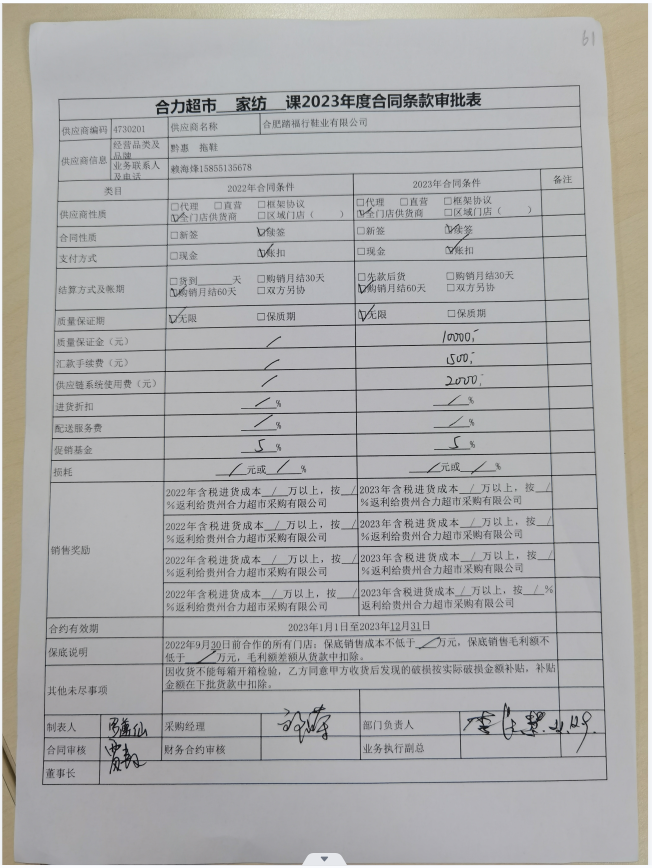 61
合力超市 家纺 课2023年度合同条款审批表
供应商编码 4730201 供应商名称 合肥踏福行鞋业有限公司
供应商信息 经营品类及品牌 黔惠 拖鞋
业务联系人及电话 赖海烽15855135678
类目 2022年合同条件 2023年合同条件 备注
供应商性质 □代理 □直营 □框架协议 □代理 □直营 □框架协议
☑全门店供货商 □区域门店（ ） ☑全门店供货商 □区域门店（ ）
合同性质 □新签 ☑续签 □新签 ☑续签
支付方式 □现金 ☑账扣 □现金 ☑账扣
结算方式及账期 □货到____天 □购销月结30天 □先款后货 □购销月结30天
☑购销月结60天 □双方另协 ☑购销月结60天 □双方另协
质量保证期 ☑无限 □保质期 ☑无限 □保质期
质量保证金（元） / 10000;
汇款手续费（元） / 500;
供应链系统使用费（元） / 2000;
进货折扣 / % / %
配送服务费 / % / %
促销基金 5 % 5 %
损耗 / 元或 / % / 元或 / %
销售奖励
2022年含税进货成本 / 万以上，按 / 2023年含税进货成本 / 万以上，按 /
%返利给贵州合力超市采购有限公司 %返利给贵州合力超市采购有限公司
2022年含税进货成本 / 万以上，按 / 2023年含税进货成本 / 万以上，按 /
%返利给贵州合力超市采购有限公司 %返利给贵州合力超市采购有限公司
2022年含税进货成本 / 万以上，按 / 2023年含税进货成本 / 万以上，按 /
%返利给贵州合力超市采购有限公司 %返利给贵州合力超市采购有限公司
2022年含税进货成本 / 万以上，按 / 2023年含税进货成本 / 万以上，按 / %
%返利给贵州合力超市采购有限公司 返利给贵州合力超市采购有限公司
合约有效期 2023年1月1日至2023年12月31日
保底说明 2022年9月30日前合作的所有门店：保底销售成本不低于 / 万元，保底销售毛利额不
低于 / 万元，毛利额差额从货款中扣除。
其他未尽事项 因收货不能每箱开箱检验，乙方同意甲方收货后发现的破损按实际破损金额补贴，补贴
金额在下批货款中扣除。
制表人 采购经理 部门负责人
合同审核 财务合约审核 业务执行副总
董事长